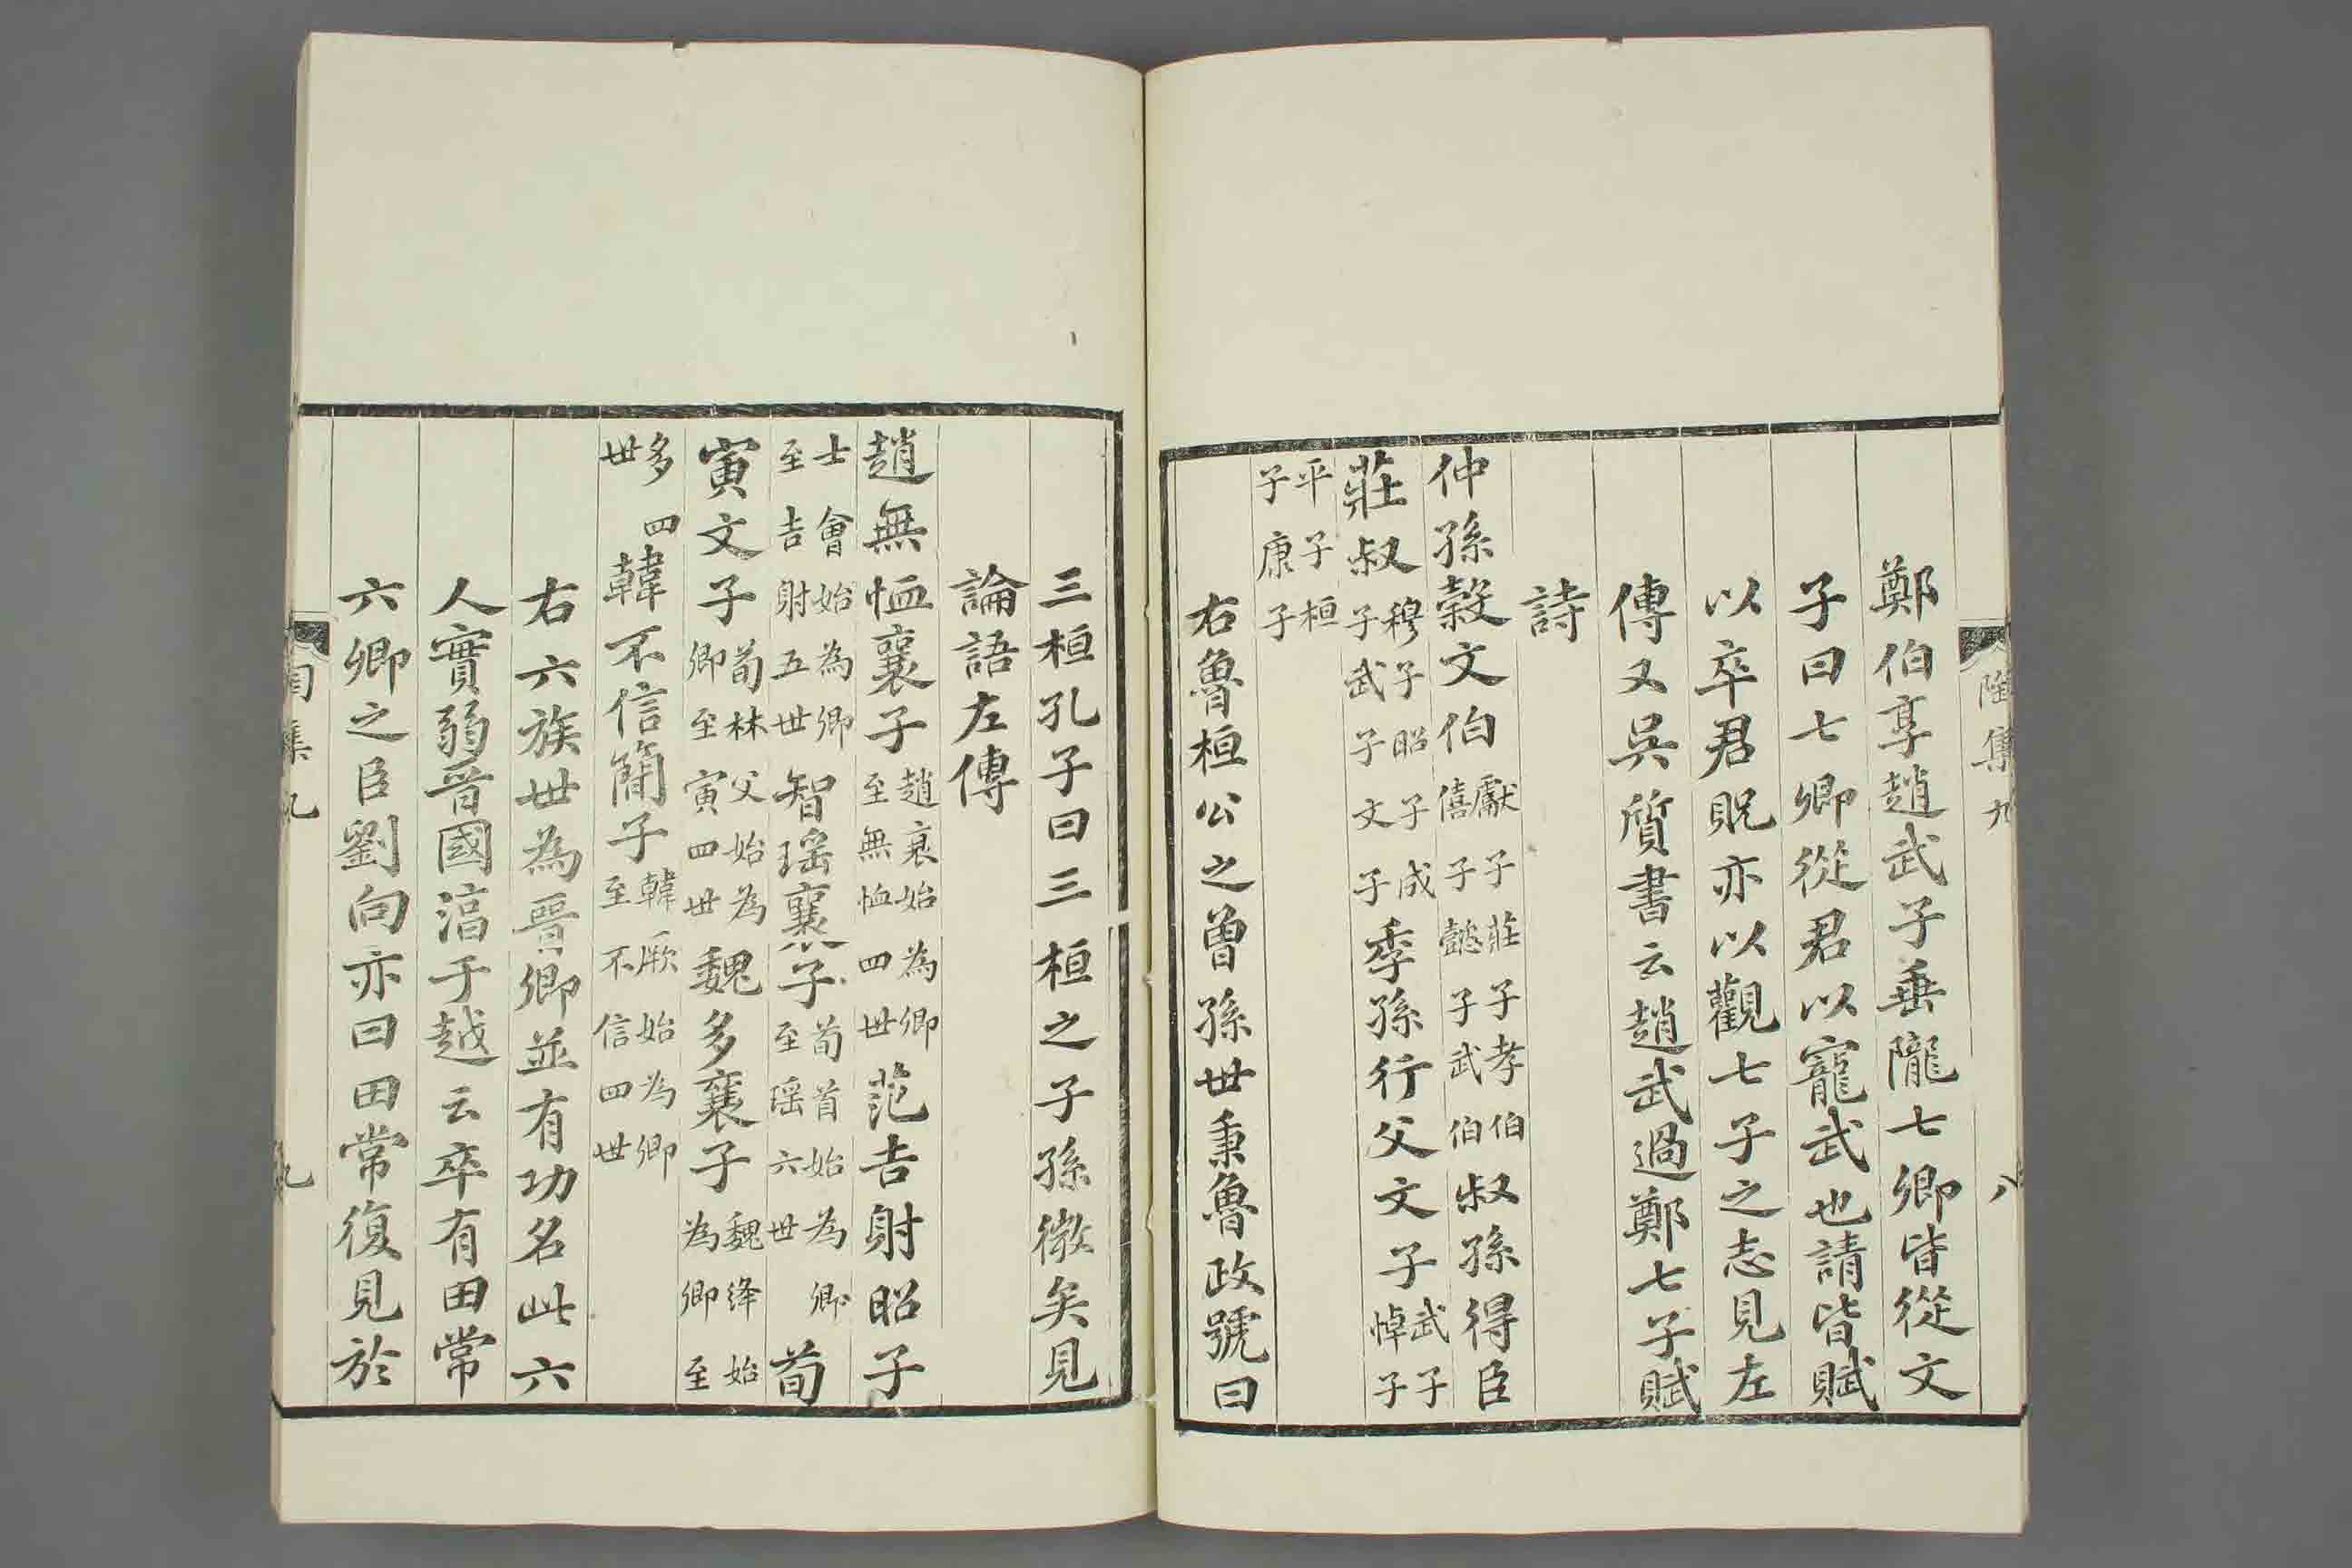 陶集九 八
鄭伯享趙武子垂隴七卿皆從文
子曰七卿從君以寵武也請皆賦
以卒君貺亦以觀七子之志見左
傳又吳質書云趙武過鄭七子賦
詩
仲孫穀文伯獻子莊子孝伯僖子懿子武伯叔孫得臣
莊叔穆子昭子成子武子文子季孫行父文子武子悼子
平子桓子康子
右魯桓公之曾孫世秉魯政號曰
三桓孔子曰三桓之子孫微矣見
論語左傳
趙無恤襄子趙衰始為卿至無恤四世范吉射昭子
士會始為卿至吉射五世智瑶襄子荀首始為卿至瑶六世荀
寅文子荀林父始為卿至寅四世魏多襄子魏絳始為卿至
多四世韓不信簡子韓厥始為卿至不信四世
右六族世為晉卿並有功名此六
人實弱晉國淊于越云卒有田常
六卿之臣劉向亦曰田常復見於
陶集九 九